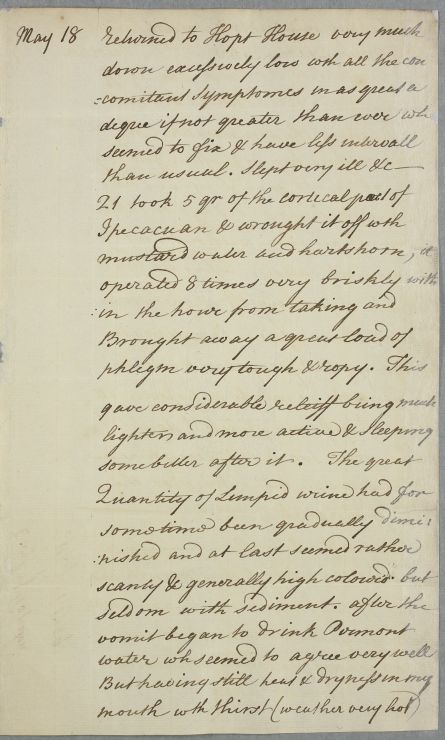 May 18 returned to Hopt House very much
down excessively low wth all the con
=comitant Symptomes in as great a
degree if not greater than ever wh
seemed to fix & have less intervall
than usual. Slept very ill &c—
21 took 5 gr of the cortical part of
Ipecacuan & wrought it off wth
mustard water and hartshorn, it
operated 8 times very briskly with
:in the hour from taking and
Brought away a great load of
phlegm very tough & ropy. This
gave considerable releiff being much
lighter and more active & sleeping
some better after it. The great
Quantity of Limpid urine had for
sometime been gradually dimi:
:nished and at last seemed rather
scanty & generally high colowred. but
seldom with sediment. after the
vomit began to drink Pirmont
water wh seemed to agree very well
But having still heat & dryness in my
mouth wth thirst (weather very hot)